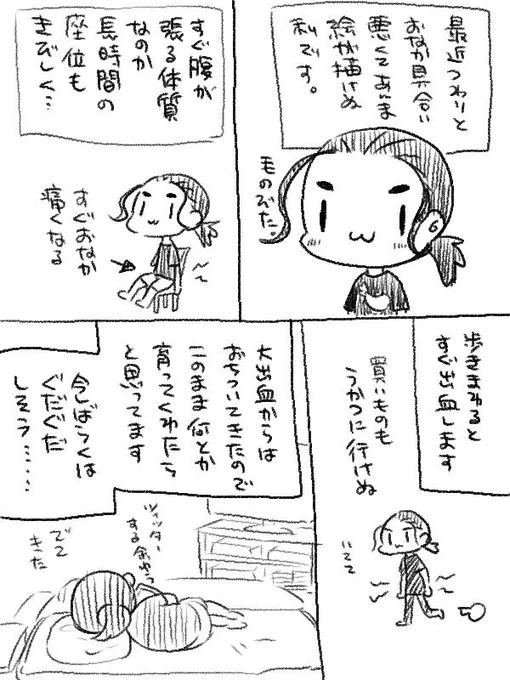 最近つわりと
おなか具合い
悪くてあんま
絵が描けぬ
私です。
ものびた。
すぐ腹が
張る体質
なのか
長時間の
座位も
きびしく…
すぐおなか
痛くなる
歩きまわると
すぐ出血します
買いものも
うかつに行けぬ
いてて
大出血からは
おちついてきたので
このまま何とか
育ってくれたら
と思ってます
今しばらくは
ぐだぐだ
しそう……
ツイッター
する余ゆう
でて
きた